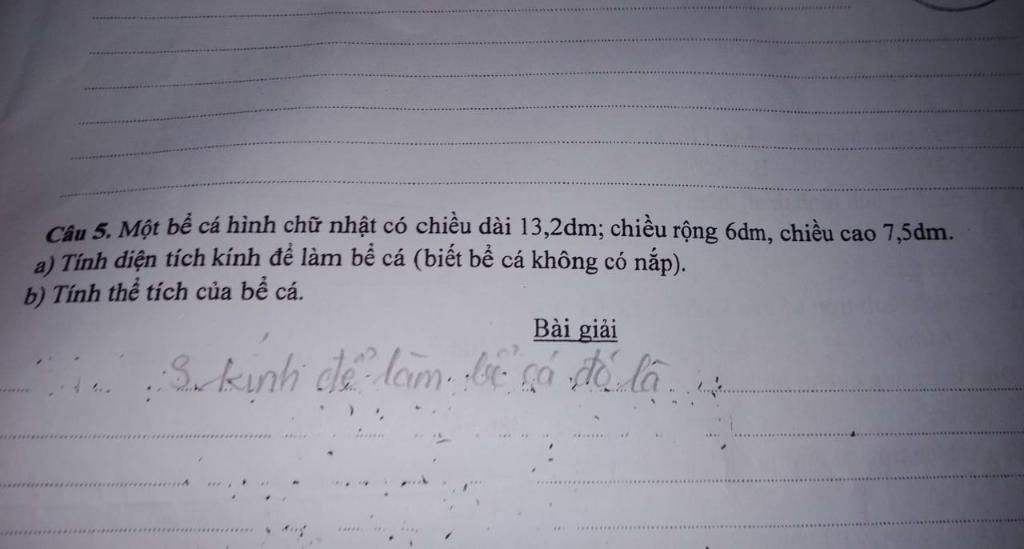 Câu 5. Một bể cá hình chữ nhật có chiều dài 13,2dm; chiều rộng 6dm, chiều cao 7,5dm.
a) Tính diện tích kính để làm bể cá (biết bể cá không có nắp).
b) Tính thể tích của bể cá.
Bài giải
S kính để làm bể cá đó là